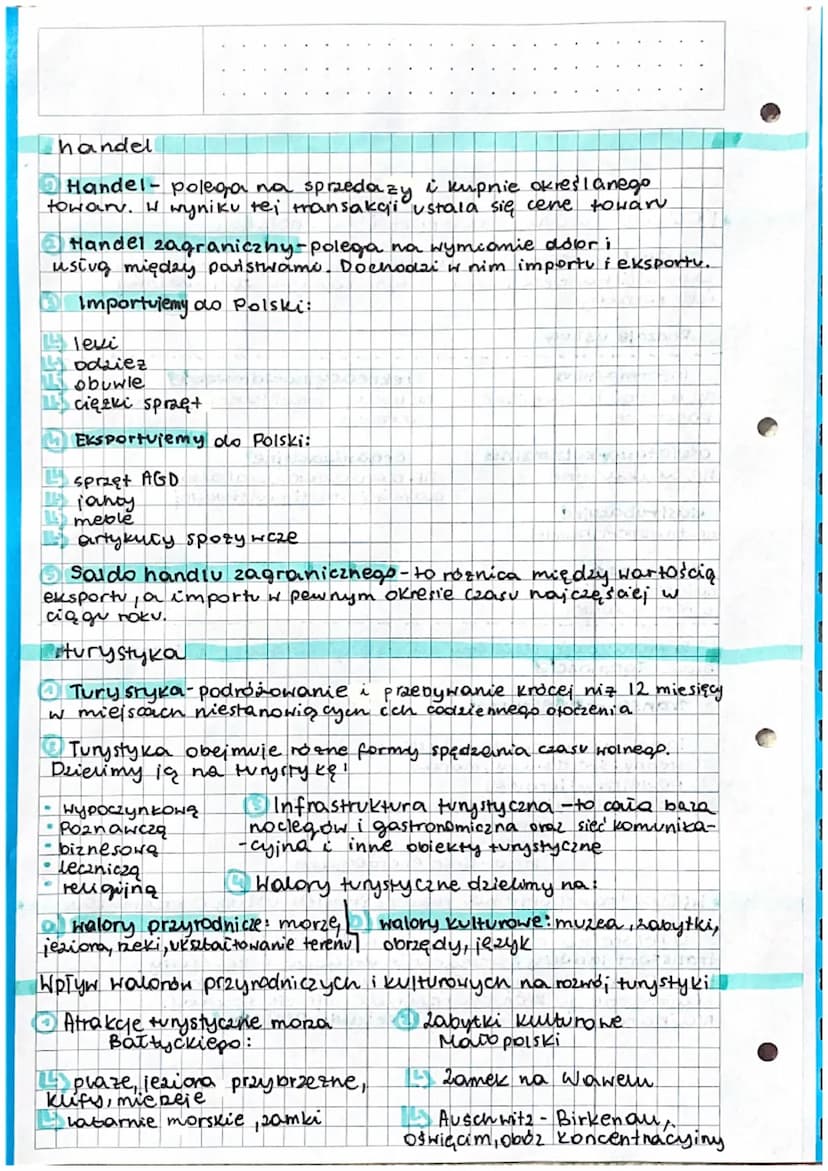 handel
① Handel - polega na sprzedaży i kupnie określanego
towaru. W wyniku tej transakcji ustala się cene towaru
② Handel zagraniczny - polega na wymianie dóbr i
usług między państwami. Dochodzi w nim importu i eksportu.
③ Importujemy do Polski:
↳ leki
↳ odzież
↳ obuwie
↳ ciężki sprzęt
④ Eksportujemy do Polski:
↳ sprzęt AGD
↳ jachty
↳ meble
↳ artykuły spożywcze
⑤ Saldo handlu zagranicznego - to różnica między wartością
eksportu, a importu w pewnym okresie czasu najczęściej w
ciągu roku.
turystyka
① Turystyka - podróżowanie i przebywanie krócej niż 12 miesięcy
w miejscach niestanowiących ich codziennego otoczenia
② Turystyka obejmuje różne formy spędzania czasu wolnego.
Dzielimy ją na turystykę:
• wypoczynkową
• Poznawczą
• biznesową
• leczniczą
• religijną
③ Infrastruktura turystyczna - to cała baza
noclegów i gastronomiczna oraz sieć komunika-
-cyjna i inne obiekty turystyczne
④ Walory turystyczne dzielimy na:
a) walory przyrodnicze: morze,
jeziora, rzeki, ukształtowanie terenu
b) walory kulturowe: muzea, zabytki,
obrzędy, język
Wpływ walorów przyrodniczych i kulturowych na rozwój turystyki
① Atrakcje turystyczne morza
Bałtyckiego:
↳ plaże, jeziora przybrzeżne,
klify, mierzeje
↳ latarnie morskie, zamki
② Zabytki kulturowe
Małopolski
↳ Zamek na Wawelu
↳ Auschwitz - Birkenau,
Oświęcim, obóz koncentracyjny